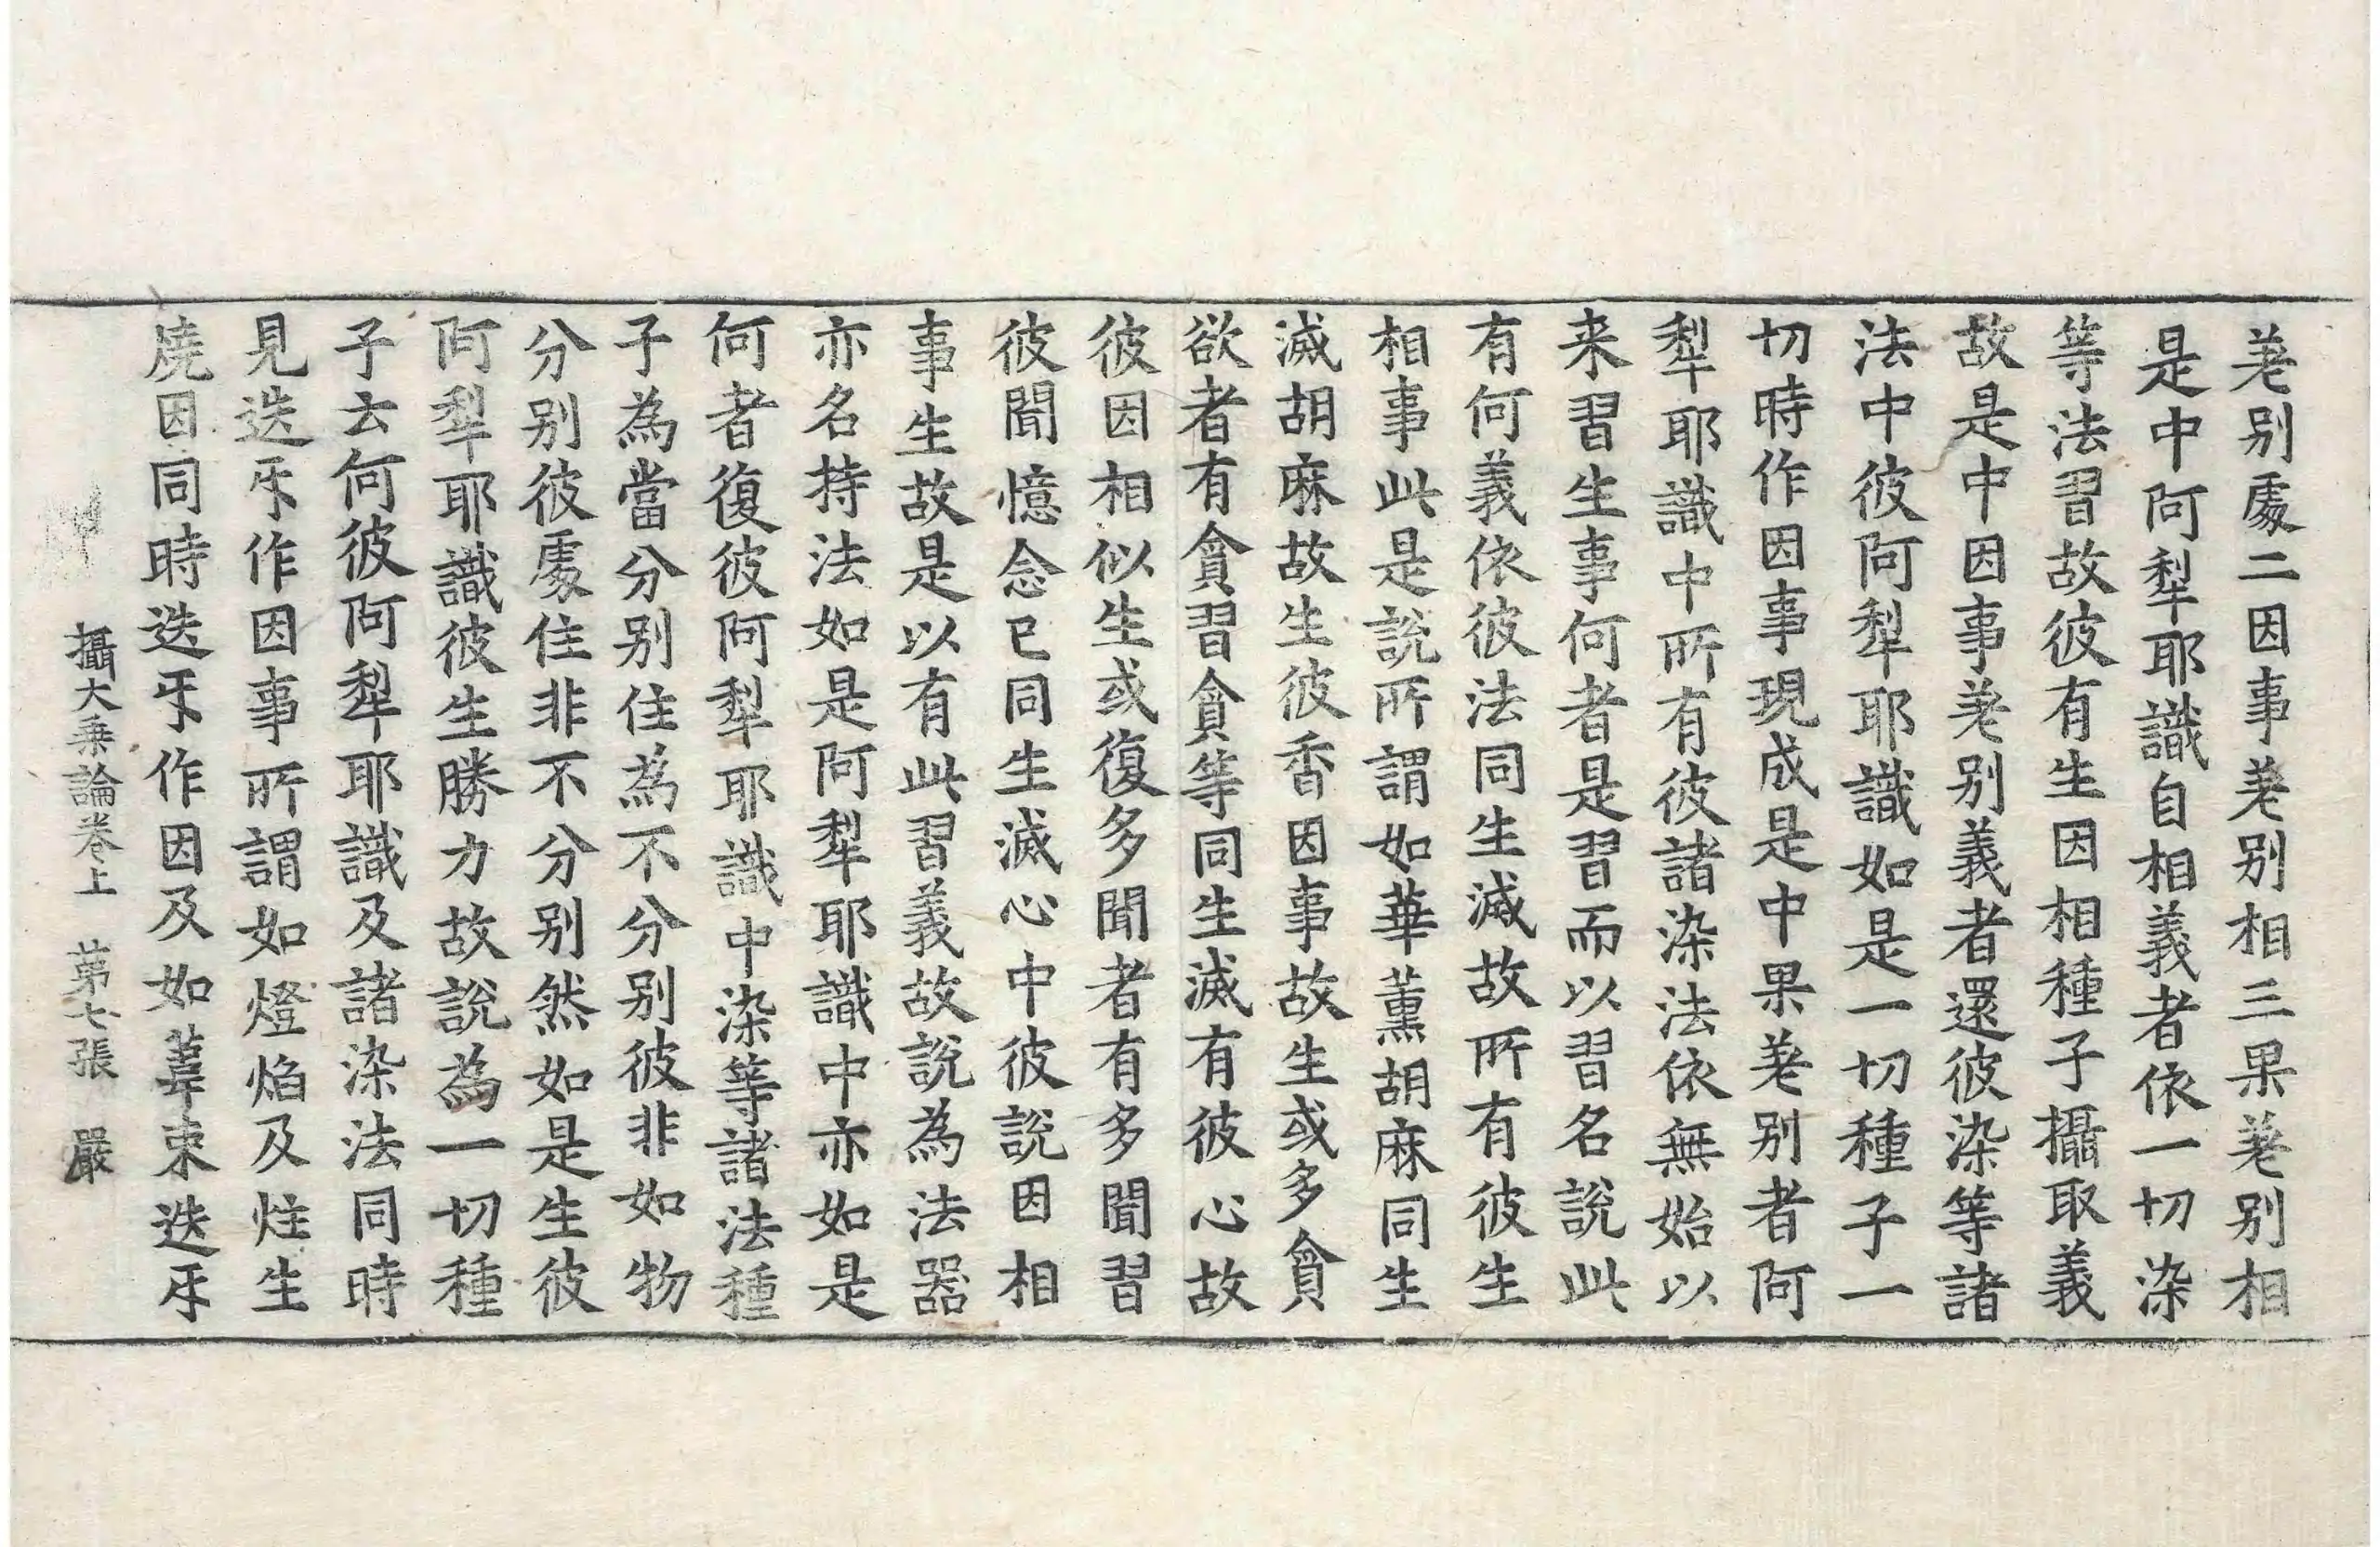 差别處二因事差别相三果差别相
是中阿犁耶識自相義者依一切染
等法習故彼有生因相種子攝取義
故是中因事差别義者還彼染等諸
法中彼阿犁耶識如是一切種子一
切時作因事現成是中果差别者阿
犁耶識中所有彼諸染法依無始以
来習生事何者是習而以習名說此
有何義依彼法同生滅故所有彼生
相事此是說所謂如華薰胡麻同生
滅胡麻故生彼香因事故生或多貪
欲者有貪習貪等同生滅有彼心故
彼因相似生或復多聞者有多聞習
彼聞憶念已同生滅心中彼說因相
事生故是以有此習義故說為法器
亦名持法如是阿犁耶識中亦如是
何者復彼阿犁耶識中染等諸法種
子為當分别住為不分别彼非如物
分别彼處住非不分别然如是生彼
阿犁耶識彼生勝力故說為一切種
子云何彼阿犁耶識及諸染法同時
見迭㸦作因事所謂如燈焰及炷生
燒因同時迭㸦作因及如葦束迭㸦
攝大乗論卷上 苐七張 嚴